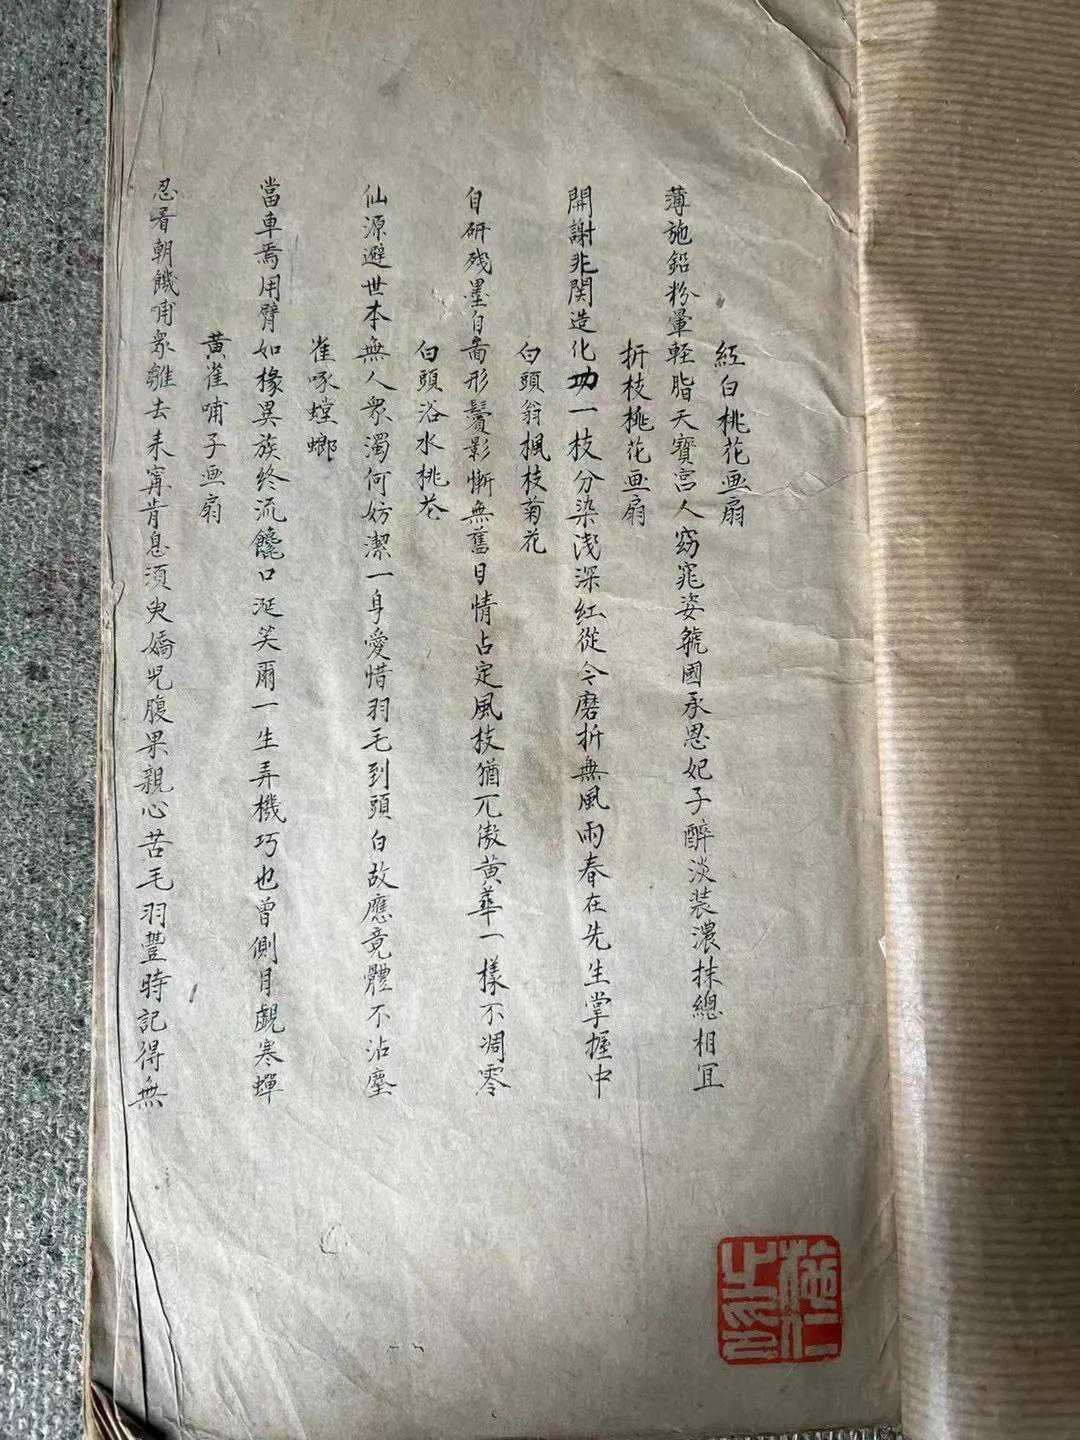 紅白桃花画扇
薄施鉛粉暈輕脂天寶宮人窈窕姿虢國承恩妃子醉淡裝濃抹總相宜
折枝桃花画扇
開謝非関造化功一枝分染浅深紅從今磨折無風雨春在先生掌握中
白頭翁楓枝菊花
自研殘墨自啚形鬢影慚無舊日情占定風枝猶兀傲黄華一樣不凋零
白頭浴水桃花
仙源避世本無人衆濁何妨潔一身愛惜羽毛到頭白故應竟體不沾塵
雀啄螳螂
當車焉用臂如椽異族終流饞口涎笑爾一生弄機巧也曾側目覷寒蟬
黄雀哺子画扇
忍看朝饑哺衆雛去来寗肯息須臾嬌児腹果親心苦毛羽豐時記得無
之印